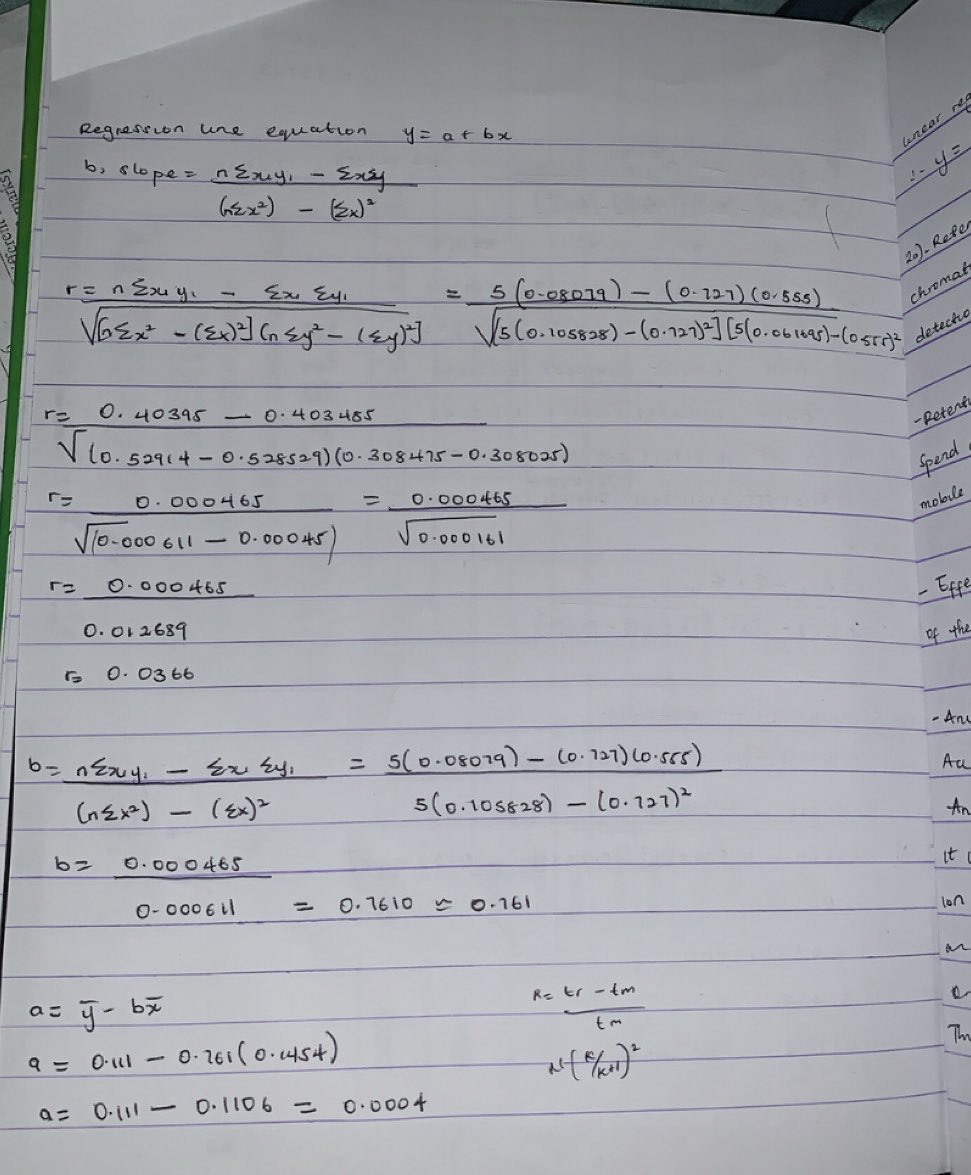 Regression line equation y = a + bx
b, slope = nΣxiyi - ΣxΣy
(nΣx²) - (Σx)²
r = nΣxiyi - Σxi Σyi = 5(0.08079) - (0.727)(0.555)
√[nΣx² - (Σx)²][nΣy² - (Σy)²] √[5(0.105828) - (0.727)²][5(0.061695) - (0.555)²
r = 0.40395 - 0.403485
√(0.52914 - 0.528529)(0.308475 - 0.308025)
r = 0.000465 = 0.000465
√(0.000611 - 0.00045) √0.000161
r = 0.000465
0.012689
r = 0.0366
b = nΣxiyi - Σxi Σyi = 5(0.08079) - (0.727)(0.555)
(nΣx²) - (Σx)² 5(0.105828) - (0.727)²
b = 0.000465
0.000611 = 0.7610 ≈ 0.761
a = ȳ - bx̄
a = 0.111 - 0.761(0.1454)
a = 0.111 - 0.1106 = 0.0004
K = tr - tm
tm
N(K/K+1)²
linear reg
∴ y =
2a) - Reten
chromat
detectio
- Retent
Spend
mobile
- Effe
of the
- An
Acc
An
it
ion
an
Th